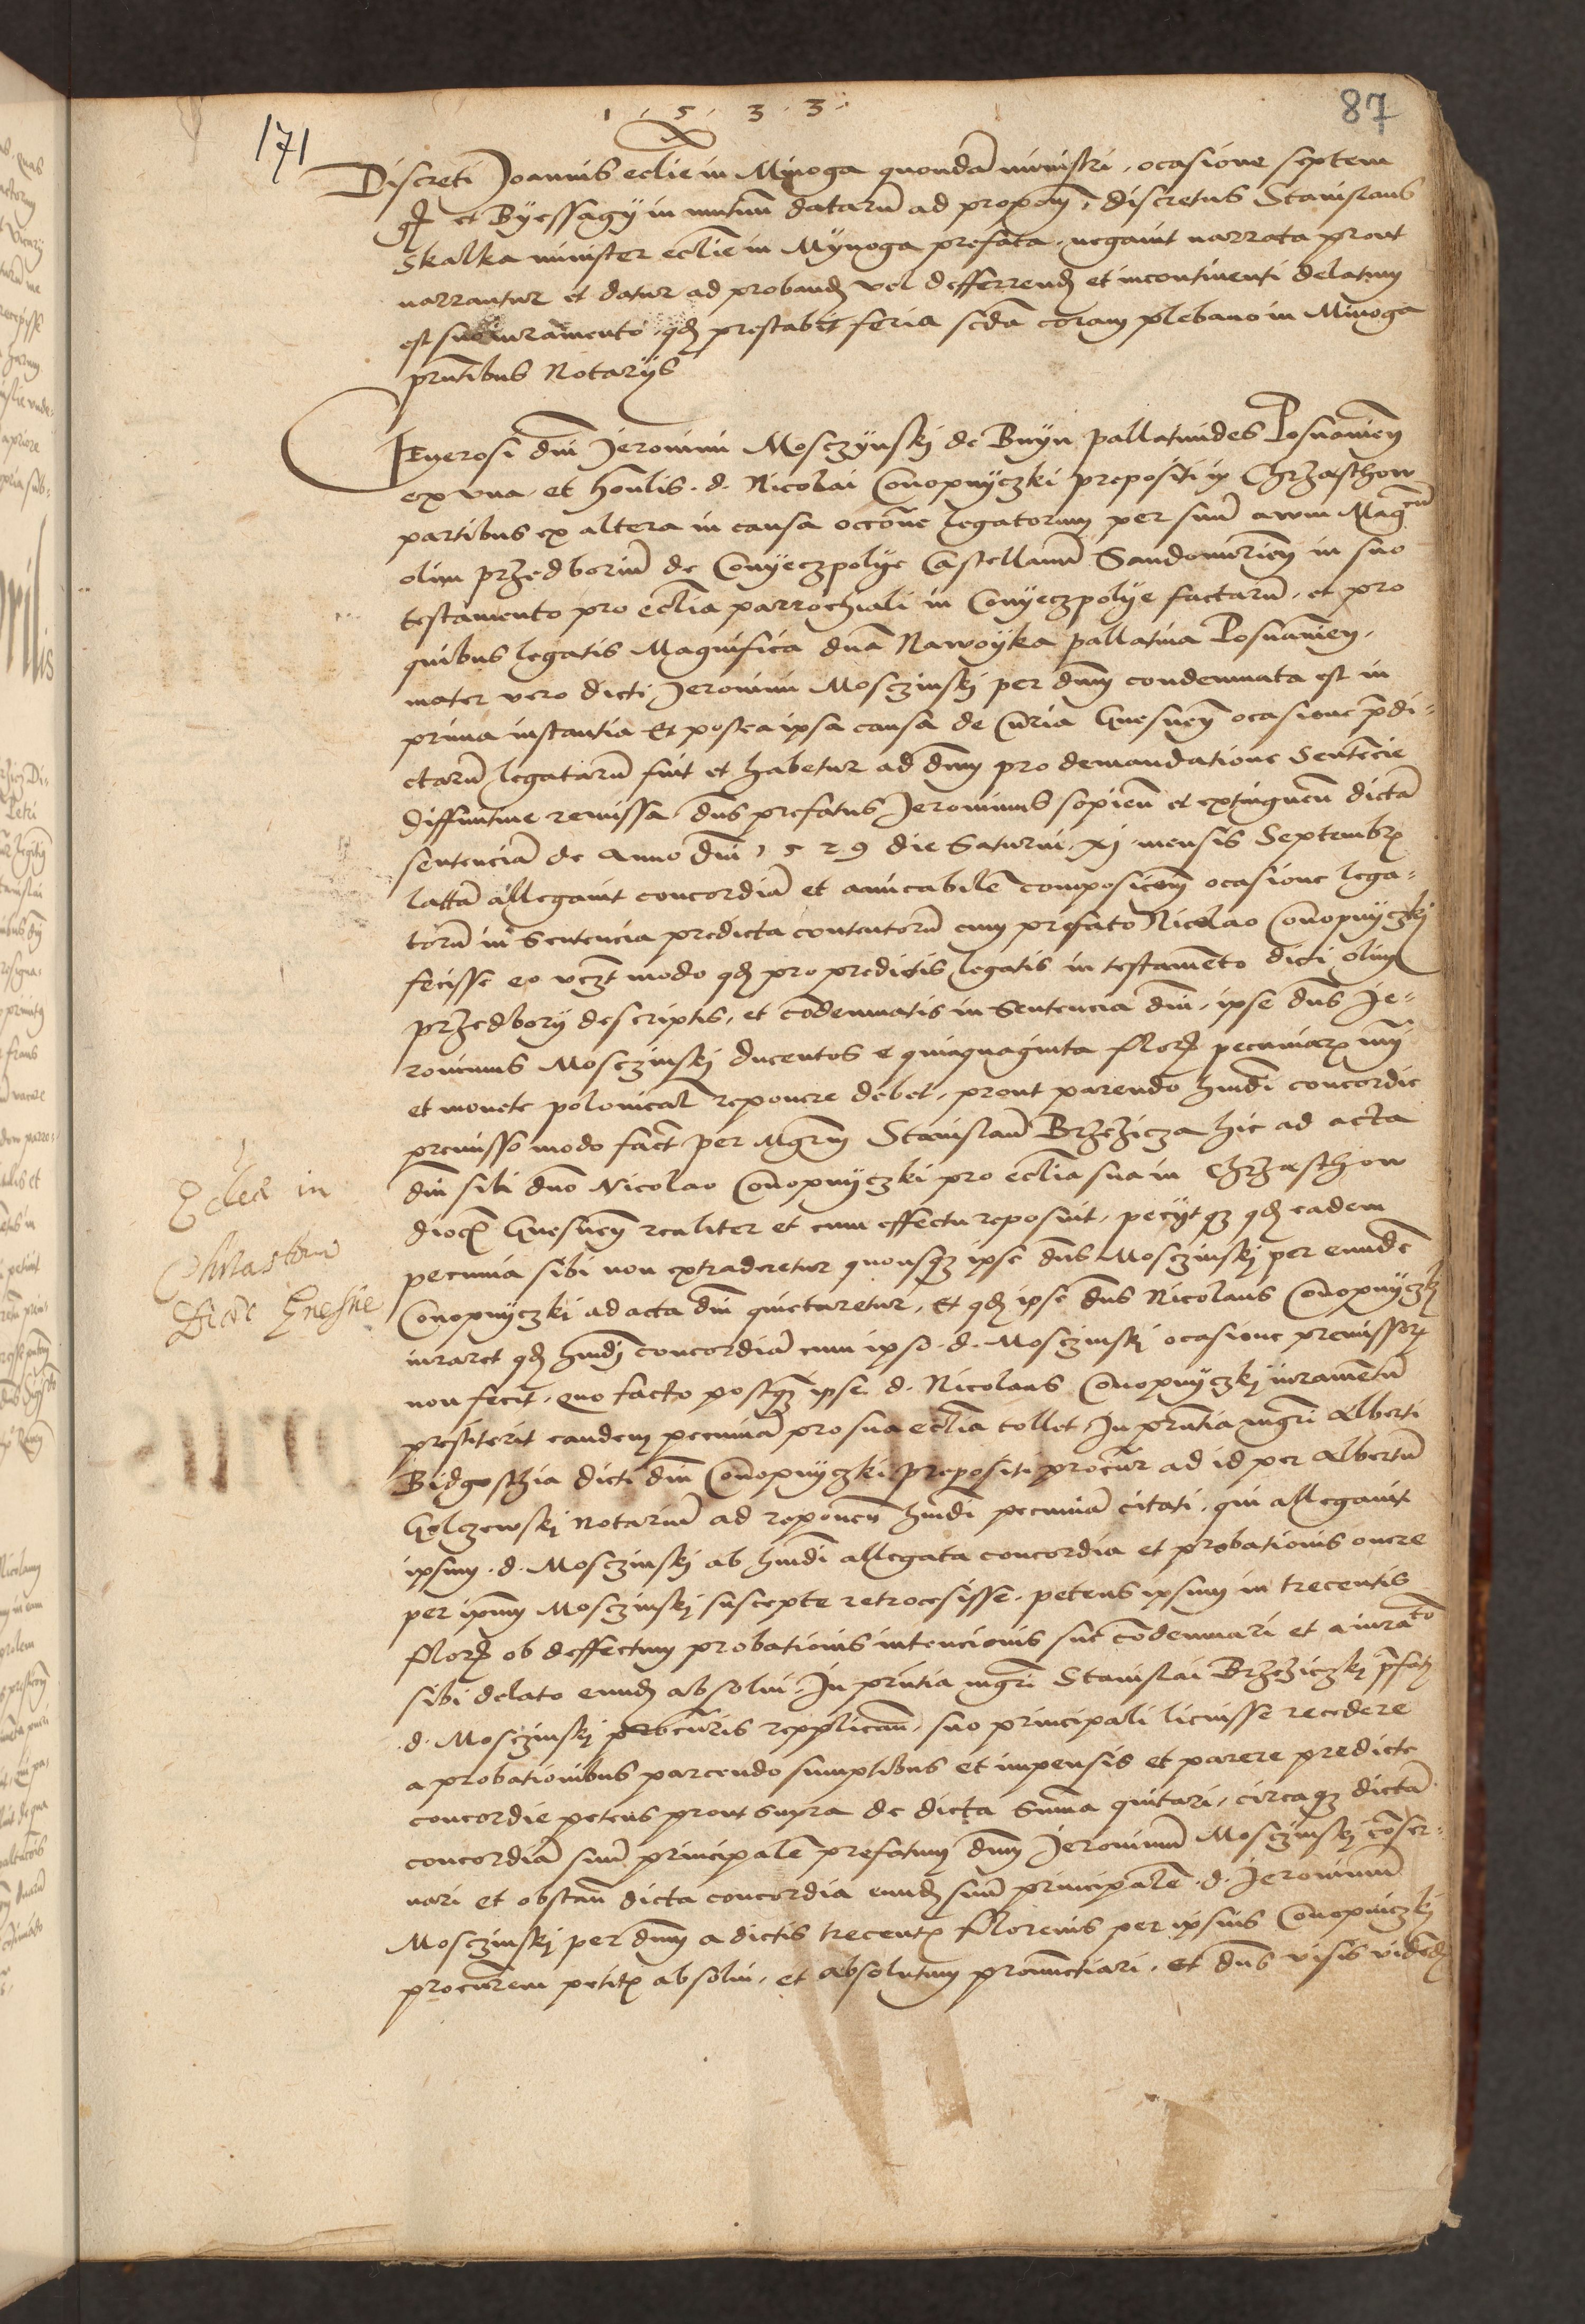 1 . 5 . 3 . 3 .
87
171
Discreti Joannis ecclie in Mijnoga quondã ministri, ocasione septem
gr et Byessagy in mutuũ datarũ ad proponẽ, discretus Stanislaus
Skalka minister ecclie in Mynoga prefata, negavit narrata prout
narrantur et datur ad probandũ vel defferrendũ et incontinenti delatum
est suo iuramento, qd prestabit feria scda coram plebano in Mnoga
prntibus Notarijs
Generosi dni Jeronimi Mosczynskj de Bnyn pallatinides Posnanieñ
ex vna et honlis . d . Nicolai Conopnyczki prepositi in Chrzasthow
partibus ex altera in causa occõne legatorum per suũ avum Magcũ
olim przedboriũ de Conyeczpolye Castellanũ Sandomirieñ in suo
testamento pro ecclia parrochiali in Conyeczpolye factarũ, et pro
quibus legatis Magnifica dna Nawoyka pallatina Posnanieñ,
mater vero dicti Jeronimi Mosczinskj per dnm condemnata est in
prima instantia Et postea ipsa causa de Curia Gnesneñ ocasione predi-
ctarũ legatarũ fuit et habetur ad dnm pro demandatione Sentencie
diffinitiue remissa, dns prefatus Jeronimus sopieñ et extingueñ dictã
sentenciã de Anno dni 1529 die Saturni xj mensis Septembr
lattã allegauit concordiã et amicabilẽ composicõem ocasione lega-
torũ in Sentencia predicta contentorũ cum prefato Nicolao Conopnyczkj
fecisse eo vczt modo qd pro predictis legatis in testamento dicti olim
przedbory descriptis, et condemnatis in Sentencia dni, ipse dns Je-
ronimus Mosczinskj ducentos e quinquaginta flor pecuniar nri
et monete polonical reponere debet, prout parendo hmdi concordie
premisso modo fact per Mgrm Stanislaũ Brzezicza hic ad acta
dni sibi dno Nicolao Conopnyczki pro ecclia sua in Chrzasthow
dioc Gnesneñ realiter et cum effectu reposuit, pecyt qd eadem
pecunia sibi non extraderetur quousqz ipse dns Mosczinskj per eundẽ
Conopnyczki ad acta dni quietaretur, Et qd ipse dns Nicolaus Conopnyczkj
iuraret qd hmdi concordiã cum ipso . d . Mosczinskj ocasione premissor
non fecit, quo facto postqz ipse . d . Nicolaus Conopnyczkj iuramentũ
prestiterit eandem pecuniã pro sua ecclia tollet, In prntia mgri Alberti
Bidgosthia dicti dni Conopnyczki prepositi procur ad id per Albertũ
Golczewskj Notariũ ad reponeñ hmdi pecuniã citati, qui allegauit
ipsum . d . Mosczinskj ab hmdi allegata concordia et probationis onere
per ipm Mosczinskj suscepte retrocesisse, petens ipsum in trecentis
flor ob deffectum probationis intencionis sue condemnari et a iurato
sibi delato eund absolui, In prntia mgri Stanislai Brzeziczkj prefati
. d . Mosczinskj procuris repplicañ, suo principali licuisse recedere
a probationibus parcendo sumptibus et impensis et parere predicte
concordie petens prout supra de dicta Suma quitari, circaqz dictã
concordiã suũ principalẽ prefatum dnm Jeronimũ Mosczinskj conser-
uari et obstañ dicta concordia eund suũ principalẽ . d . Jeronimũ
Mosczinskj per dnm a dictis trecent florenis per ipsius Conopniczkj
procurem petit absolui, et absolutum pronunctiari, Et dns visis vidend
Ecclea in
Chrzastow
Diec Gnesne